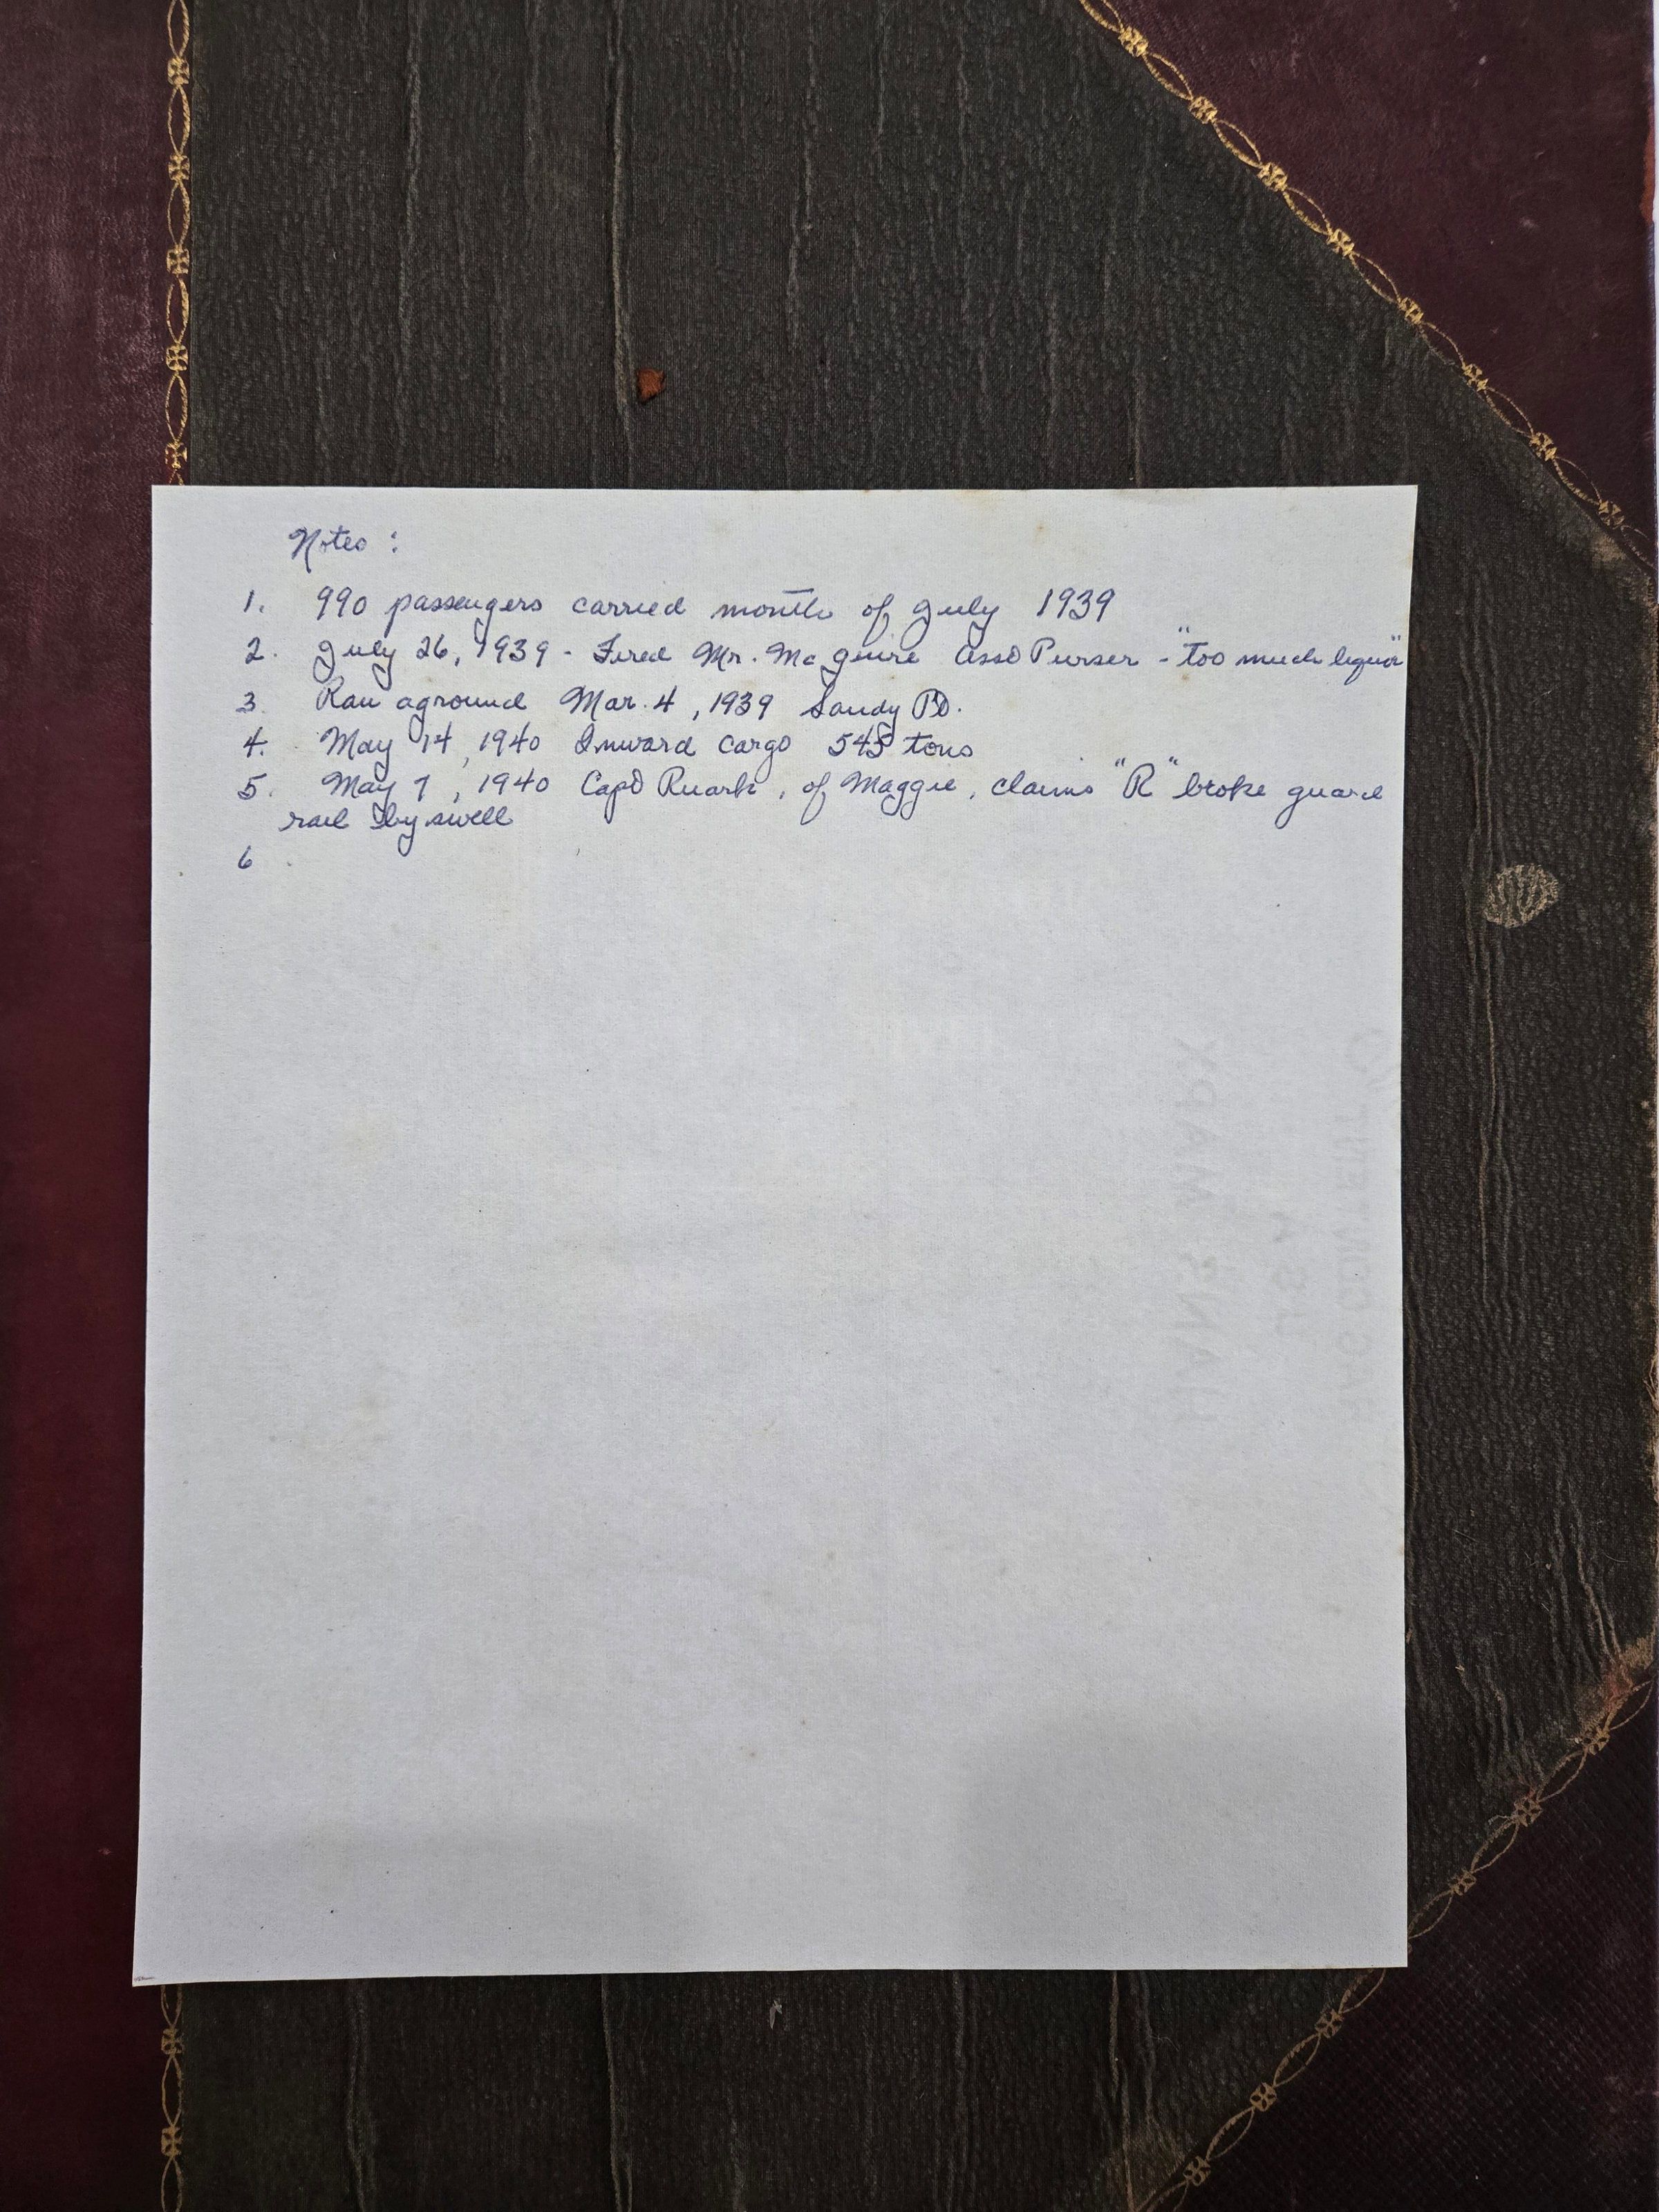 Notes :
1. 990 passengers carried month of July 1939
2. July 26, 1939 - Fired Mr. McGuire Asst Purser - "too much liquor"
3. Ran aground Mar. 4, 1939 Sandy Pt.
4. May 14, 1940 Inward cargo 545 tons
5. May 7, 1940 Capt Ruark, of Maggie, claims "R" broke guard
rail by swell
6